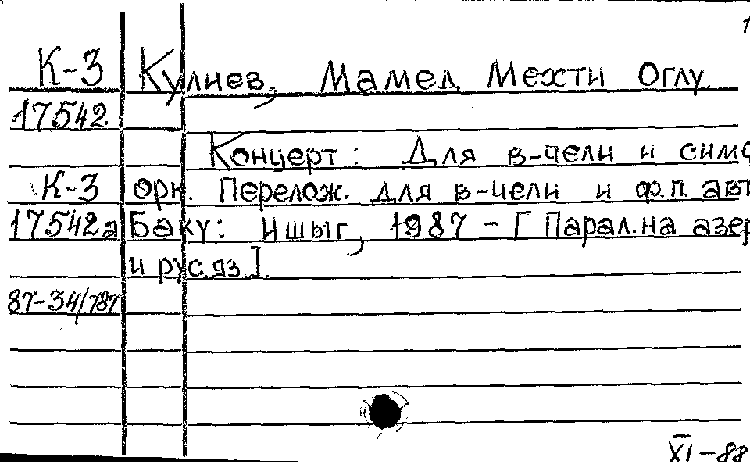 1
К-3 Кулиев, Мамед Мехти Оглу
17542
Концерт: Для в-чели и симф
К-3 орк. Перелож. для в-чели и ф.п. авт
17542а Баку: Ишыг, 1987 - [Парал. на азер
и рус. яз].
87-34/787
XI-88